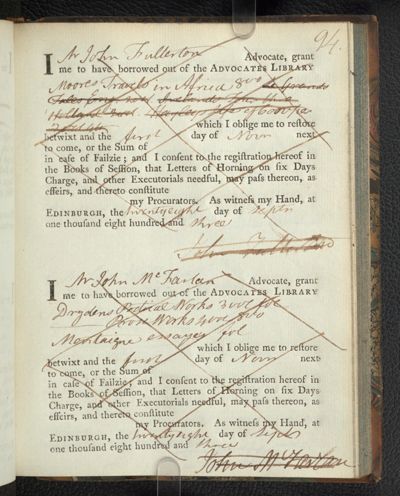 94.
I Mr John Fullerton Advocate, grant
me to have borrowed out of the ADVOCATES LIBRARY
Moores Travels in Africa 8vo Le Grands
Tales
Holland
which I oblige me to restore
betwixt and the first day of Novr next
to come, or the Sum of
in case of Failzie; and I consent to the registration hereof in
the Books of Session, that Letters of Horning on six Days
Charge, and other Executorials needful, may pass thereon, as
effeirs, and thereto constitute
my Procurators. As witness my Hand, at
EDINBURGH, the twentyeight day of Septr
one thousand eight hundred and three
John Fullerton
I Mr John McFarlan Advocate, grant
me to have borrowed out of the ADVOCATES LIBRARY
Drydens Poetical Works 3 vol 8vo
Prose Works 4 vol 8vo
Montaigne essayes fol
which I oblige me to restore
betwixt and the first day of Novr next
to come, or the Sum of
in case of Failzie; and I consent to the registration hereof in
the Books of Session, that Letters of Horning on six Days
Charge, and other Executorials needful, may pass thereon, as
effeirs, and thereto constitute
my Procurators. As witness my Hand, at
EDINBURGH, the twentyeight day of Septr
one thousand eight hundred and three
John McFarlan